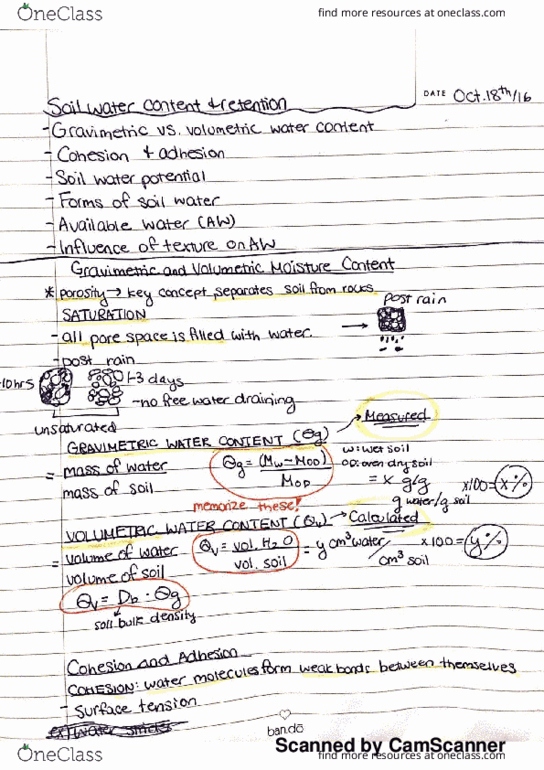 OneClass
find more resources at oneclass.com
DATE Oct.18th/16
Soil water content & retention
- Gravimetric vs. volumetric water content
- Cohesion & adhesion
- Soil water potential
- Forms of soil water
- Available water (AW)
- Influence of texture on AW
Gravimetric and Volumetric Moisture Content
* porosity → key concept separates soil from rocks
SATURATION
post rain
- all pore space is filled with water. →
- post rain
10hrs
1-3 days
- no free water draining
unsaturated
Measured
GRAVIMETRIC WATER CONTENT (θg)
= mass of water
mass of soil
θg = (Mw - MOD)
MOD
w: wet soil
OD: oven dry soil
= x g/g x100 = x %
g water/g soil
memorize these!
VOLUMETRIC WATER CONTENT (θv) → Calculated
= volume of water
volume of soil
θv = vol. H2O
vol. soil
= y cm³ water / cm³ soil x100 = y %
θv = Db · θg
soil bulk density
Cohesion and Adhesion
COHESION: water molecules form weak bonds between themselves
- Surface tension
ban.do
Scanned by CamScanner
OneClass
find more resources at oneclass.com